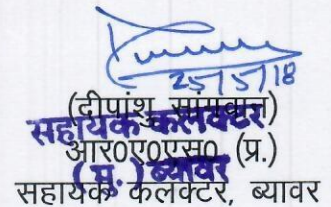 25/5/18
(दीपांशु सांगवान)
सहायक कलक्टर
आर०ए०एस० (प्र.)
(मु.) ब्यावर
सहायक कलक्टर, ब्यावर